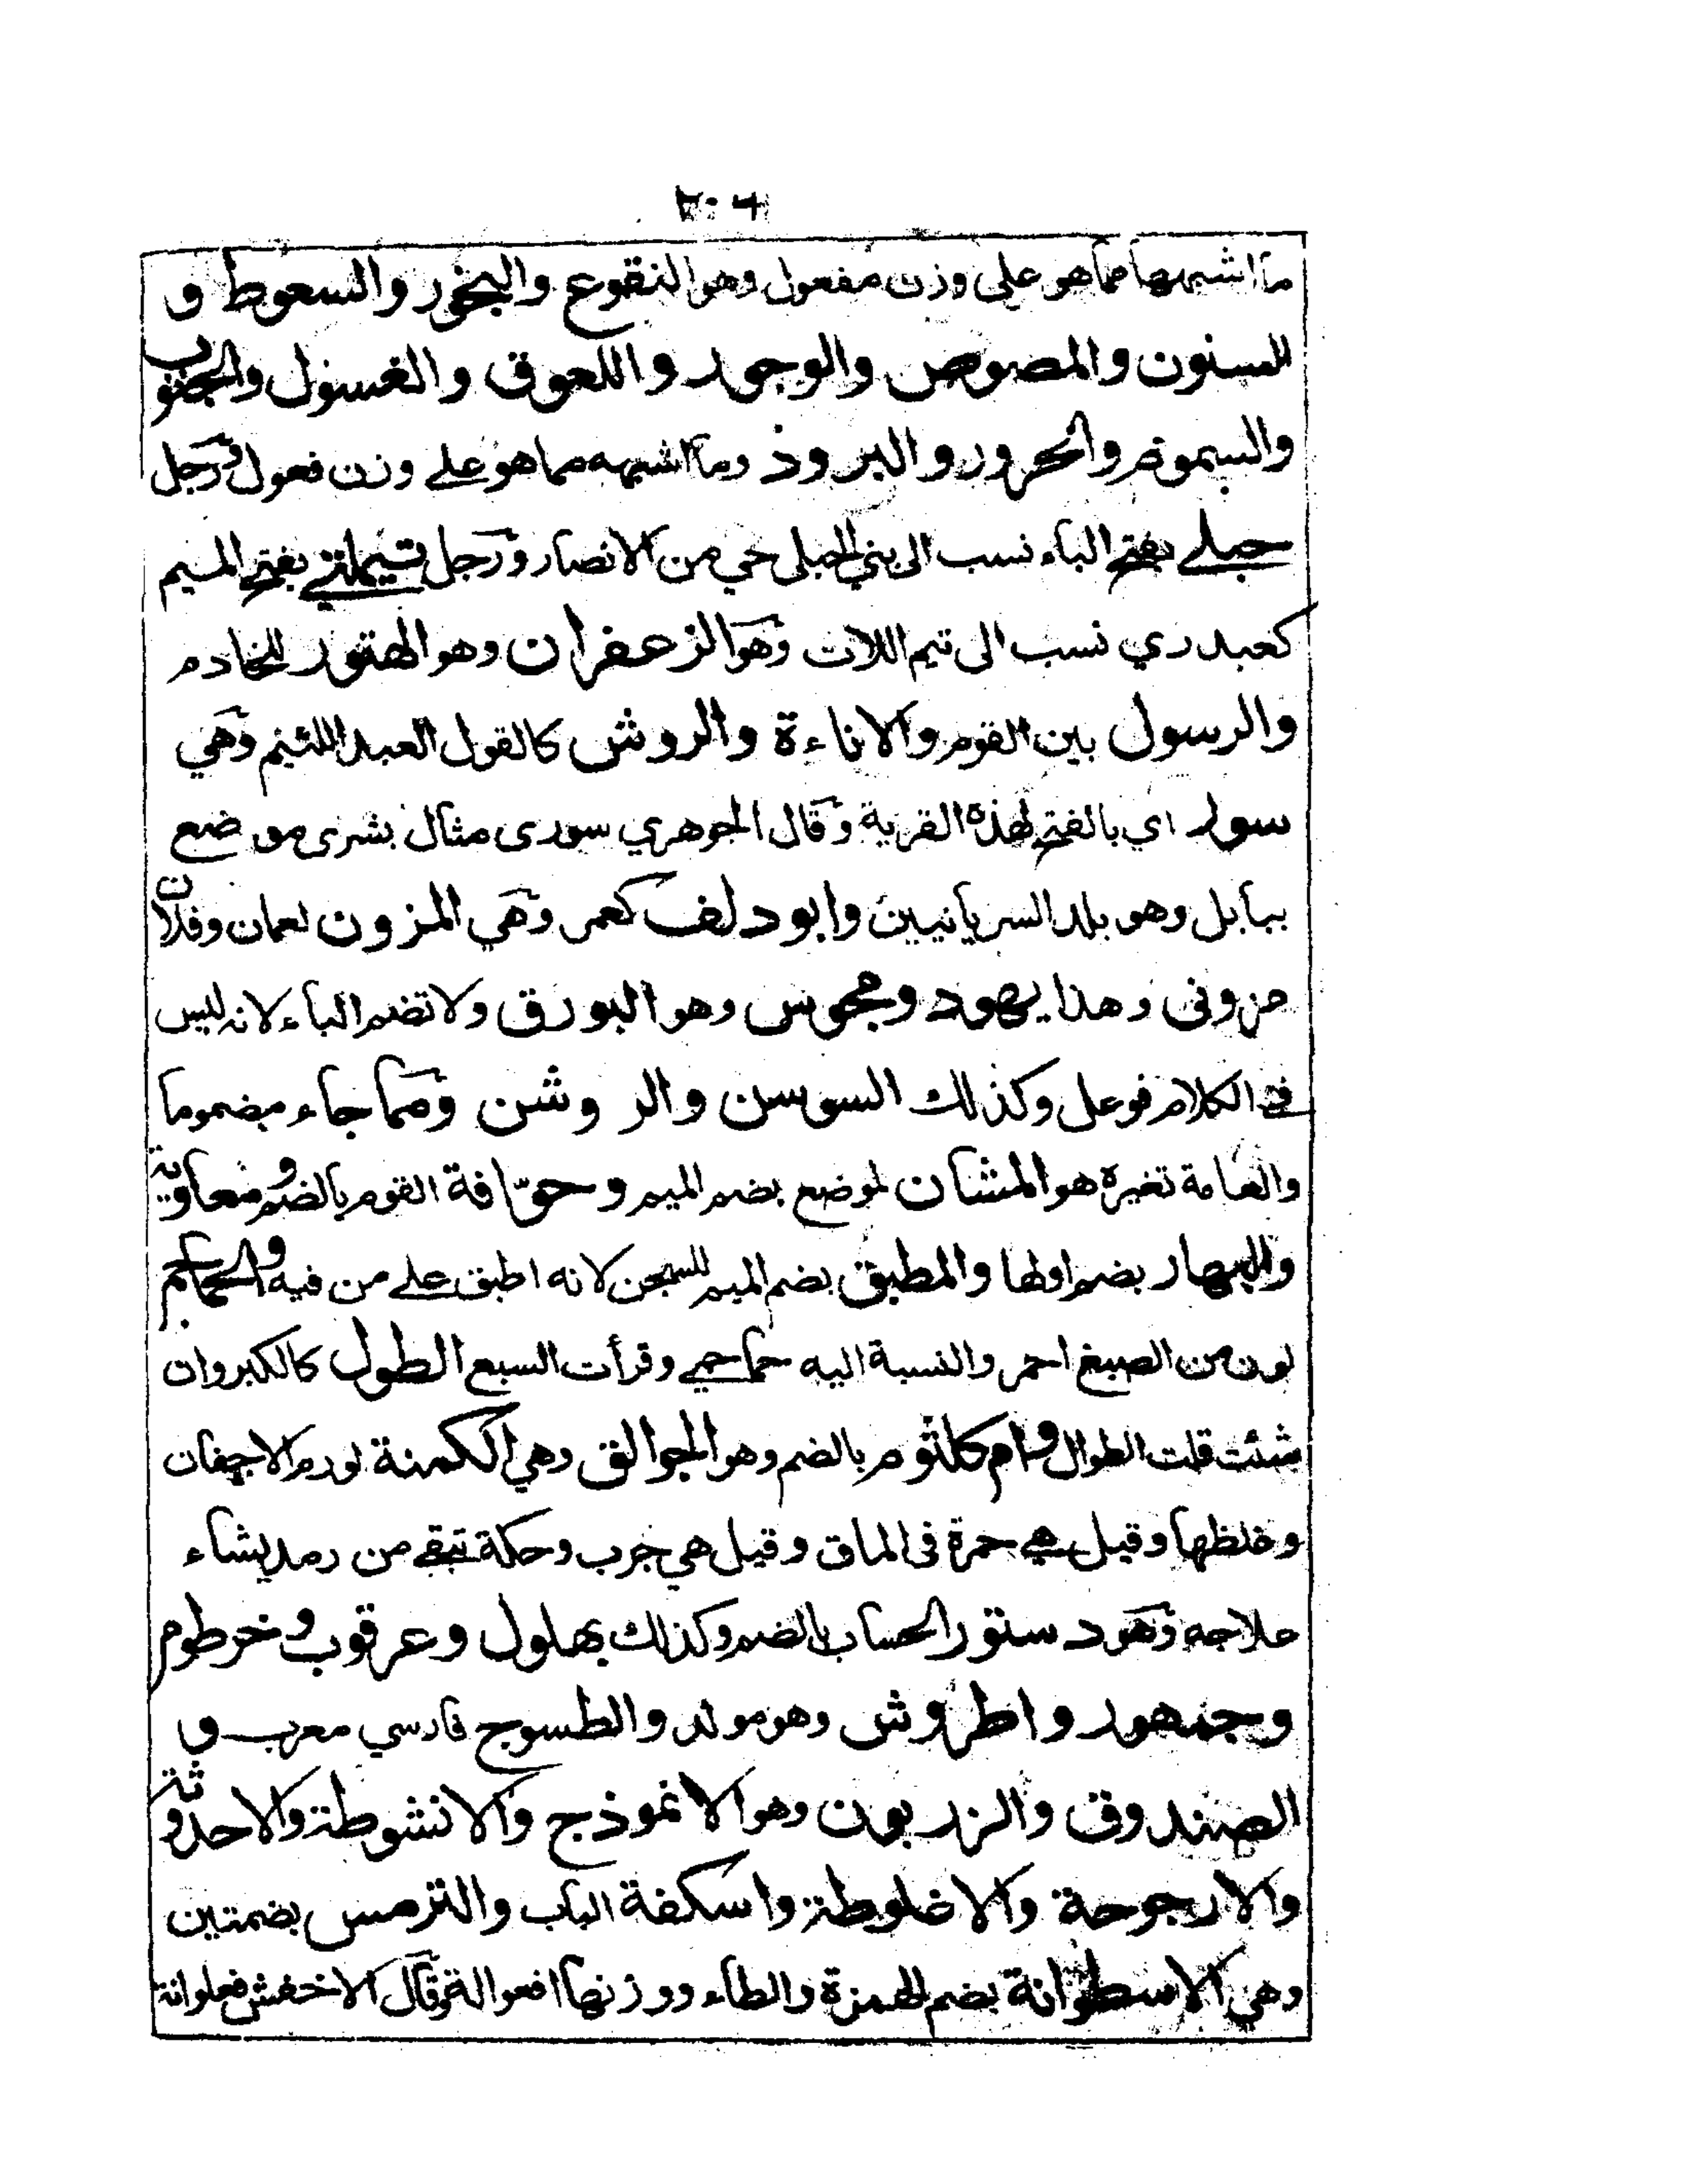 ٢٠٤
ما اشبهها مما هو على وزن مفعول وهو النقوع والبخور والسعوط و
السنون والمصوص والوجور واللعوق والغسول والجنوب
والسموم والحرور والبرود وما اشبهه مما هو على وزن فعول ورجل
حبلي بفتح الباء نسب الى بني الحبلى حي من الانصار ورجل تيملي بفتح الميم
كعبدري نسب الى تيم اللات وهو الزعفران وهو الهتور للخادم
والرسول بين القوم والاناءة والروش كالقول العبد اللئيم وهي
سورا اي بالفتح لهذه القرية وقال الجوهري سورى مثال بشرى موضع
ببابل وهو بلد السريانيين وابو دلف كعمر وهي المزون لعمان وفلان
مزونى وهذا يهود ومجوس وهو البورق ولا تضم الباء لانه ليس
في الكلام فوعل وكذلك السوسن والروشن ومما جاء مضموما
والعامة تغيره هو المشان لموضع بضم الميم وحوّافة القوم بالضم ومعاوية
والبهار بضم اولها والمطبق بضم الميم للسجن لانه اطبق على من فيه والحماحم
لون من الصبغ احمر والنسبة اليه حماحمي وقرأت السبع الطول كالكبر وان
شئت قلت الطوال وام كلثوم بالضم وهو الجوالق وهي الكمنة لورم الاجفان
وغلظها وقيل هي حمرة فى الماق وقيل هي جرب وحكة تبقى من رمد يساء
علاجه وهو دستور الحساب بالضم وكذلك بهلول وعرقوب وخرطوم
وجمهور واطروش وهو مولد والطسوج فارسي معرب و
الصندوق والزربون وهو الانموذج والانشوطة والاحدوثة
والارجوحة والاغلوطة واسكفة الباب والترمس بضمتين
وهي الاسطوانة بضم الهمزة والطاء ووزنها افعوالة وقال الاخفش فعلوانة